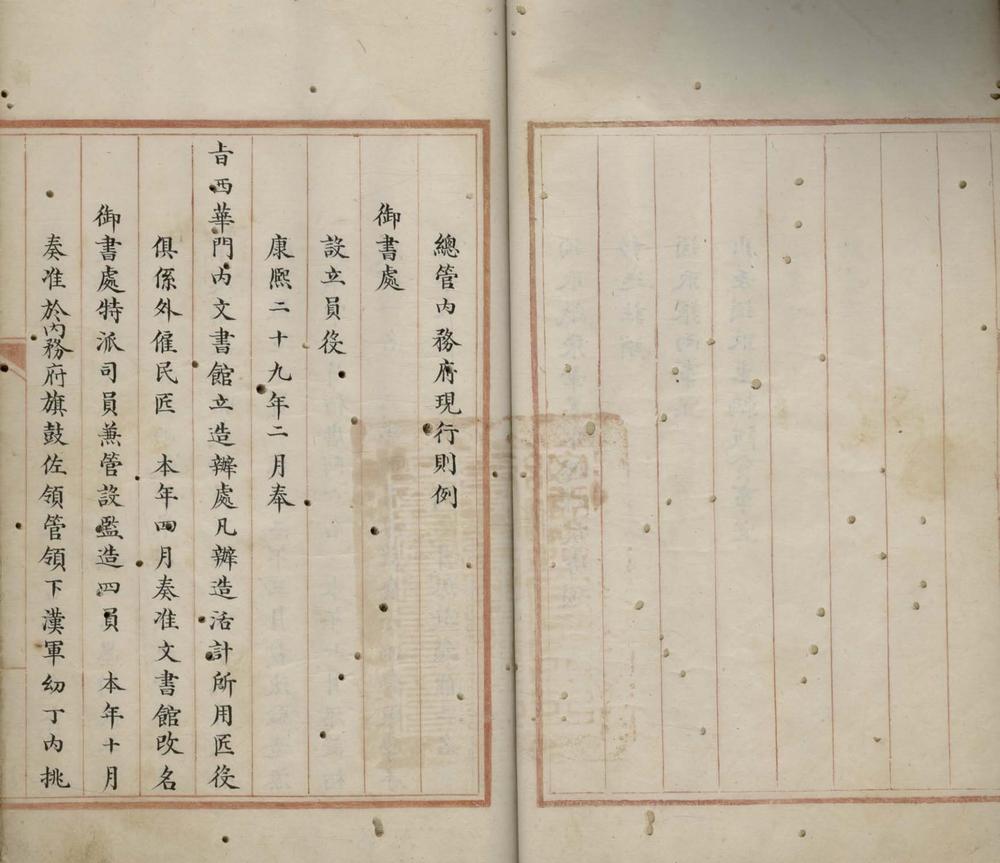 總管内務府現行則例
御書處
設立員役
康熙二十九年二月奉
旨西華門内文書館立造辦處凡辦造活計所用匠役
俱係外僱民匠 本年四月奏准文書館改名
御書處特派司員兼管設監造四員 本年十月
奏准於内務府旗鼓佐領管領下漢軍幼丁内挑